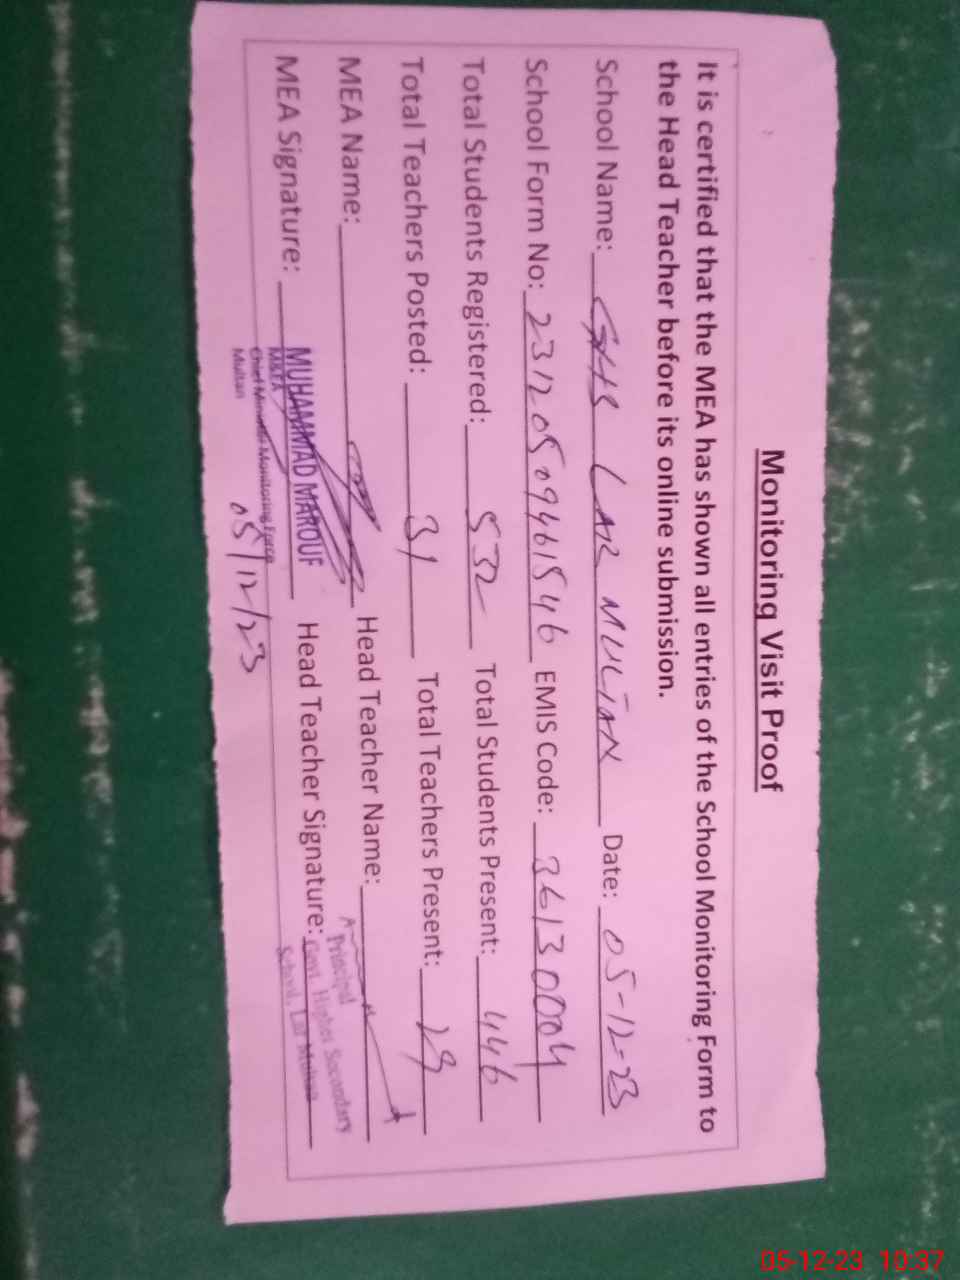 Monitoring Visit Proof
It is certified that the MEA has shown all entries of the School Monitoring Form to
the Head Teacher before its online submission.
School Name: GHS LAR MULTAN Date: 05-12-23
School Form No: 23120509461546 EMIS Code: 36130004
Total Students Registered: 532 Total Students Present: 446
Total Teachers Posted: 31 Total Teachers Present: 29
MEA Name: Head Teacher Name:
MEA Signature: MUHAMMAD MAROUF Head Teacher Signature:
M&EA
Chief Minister Monitoring Force
Multan
05/12/23
Principal
Govt. Higher Secondary
School, Lar Multan
05-12-23 10:37